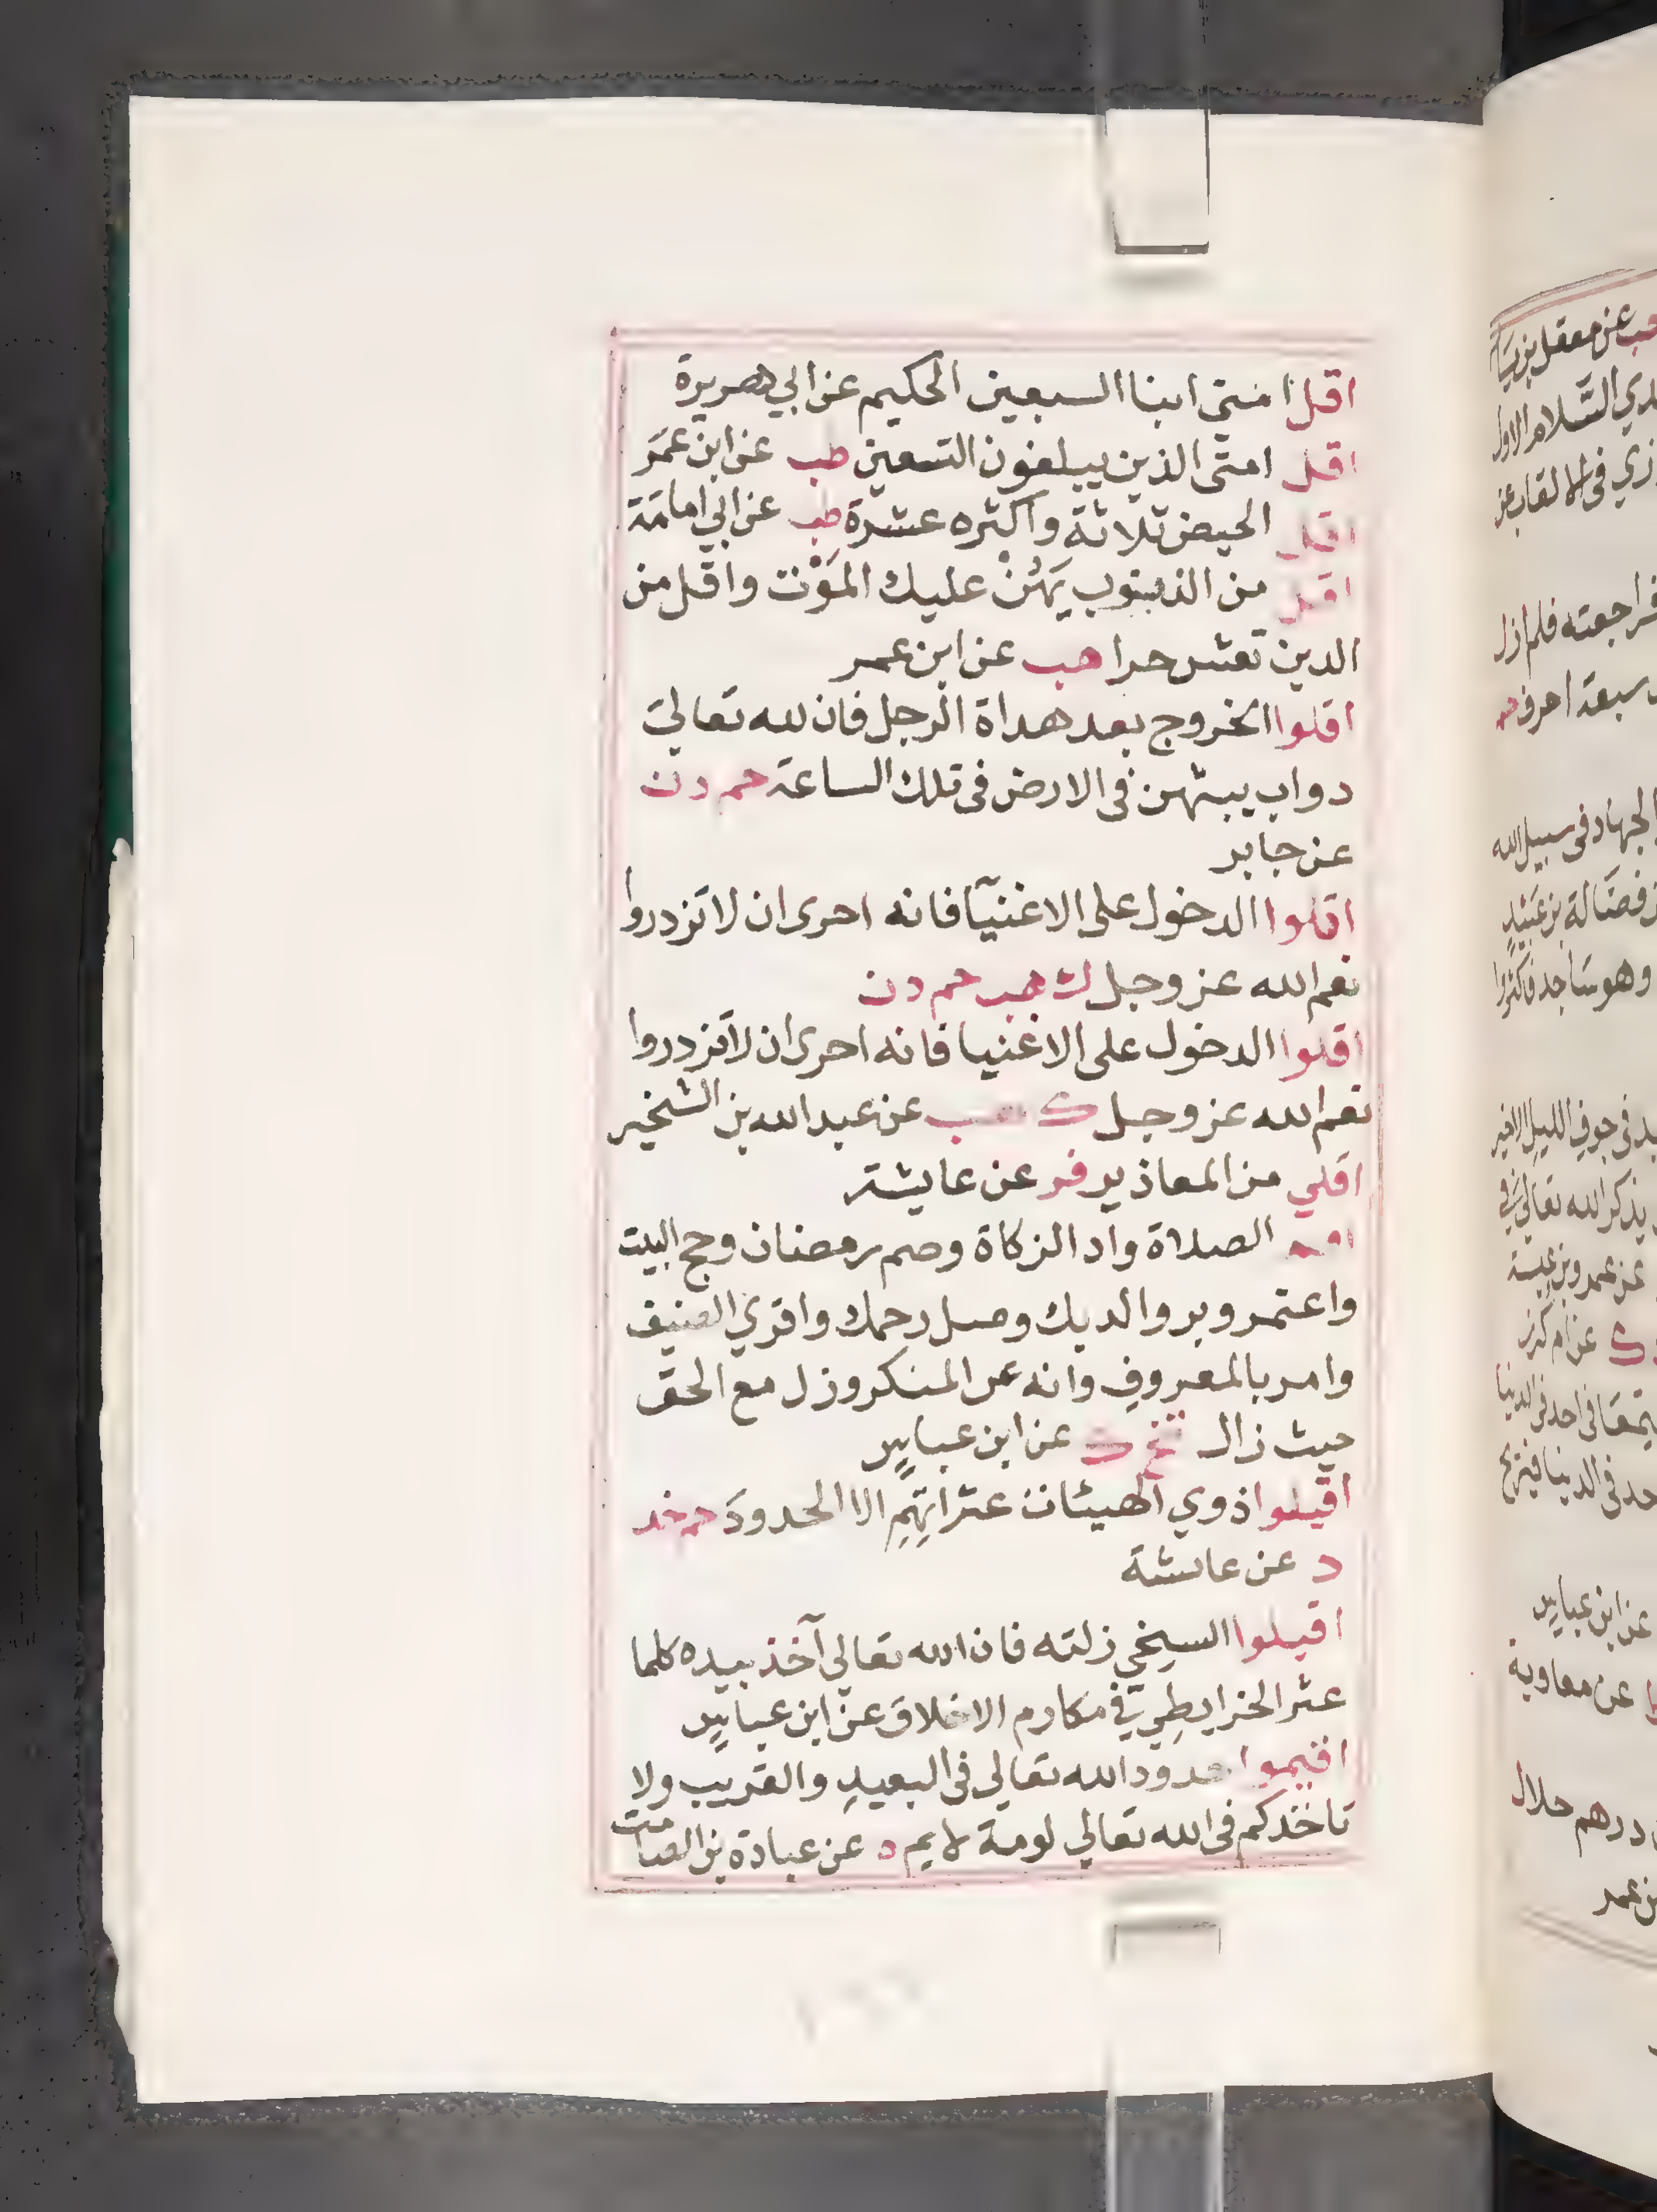 اقل امتي ابنا السبعين الحكيم عن ابي هريرة
اقل امتى الذين يبلغون التسعين طب عن ابن عمَر
اقل الحيض ثلاثة واكثره عشرة طب عن ابي امامَة
اقل من الذنوب يَهُنْ عليك المَوْت واقل من
الدين تعش حرا هب عن ابن عمر
اقلوا الخروج بعد هداة الرجل فان لله تعالى
دواب يبثهن فى الارض فى تلك الساعة حم د ن
عن جابر
اقلوا الدخول على الاغنيآ فانه احرى ان لا تزدروا
نعم الله عز وجل ك هب حم د ن
اقلوا الدخول على الاغنيا فانه احرى ان لا تزدروا
نعم الله عز وجل ك هب عن عبد الله بن الشخير
اقلي من المعاذير فر عن عايشة
اقم الصلاة واد الزكاة وصم رمضان وحج البيت
واعتمر وبر والديك وصل رحمك واقري الضيف
وامر بالمعروف وانه عن المنكر وزل مع الحق
حيث زال تخ ك عن ابن عباس
اقيلوا ذوي الهيئات عثراتِهِم الا الحدودَ حم خد
د عن عائشة
اقيلوا السخي زلته فان الله تعالى آخذ بيده كلما
عثر الخرايطي في مكارم الاخلاق عن ابن عباس
اقيموا حدود الله تعالي فى البعيدِ والقريب ولا
تاخذكم فى الله تعالي لومة لايم ه عن عبادة بن الصامت